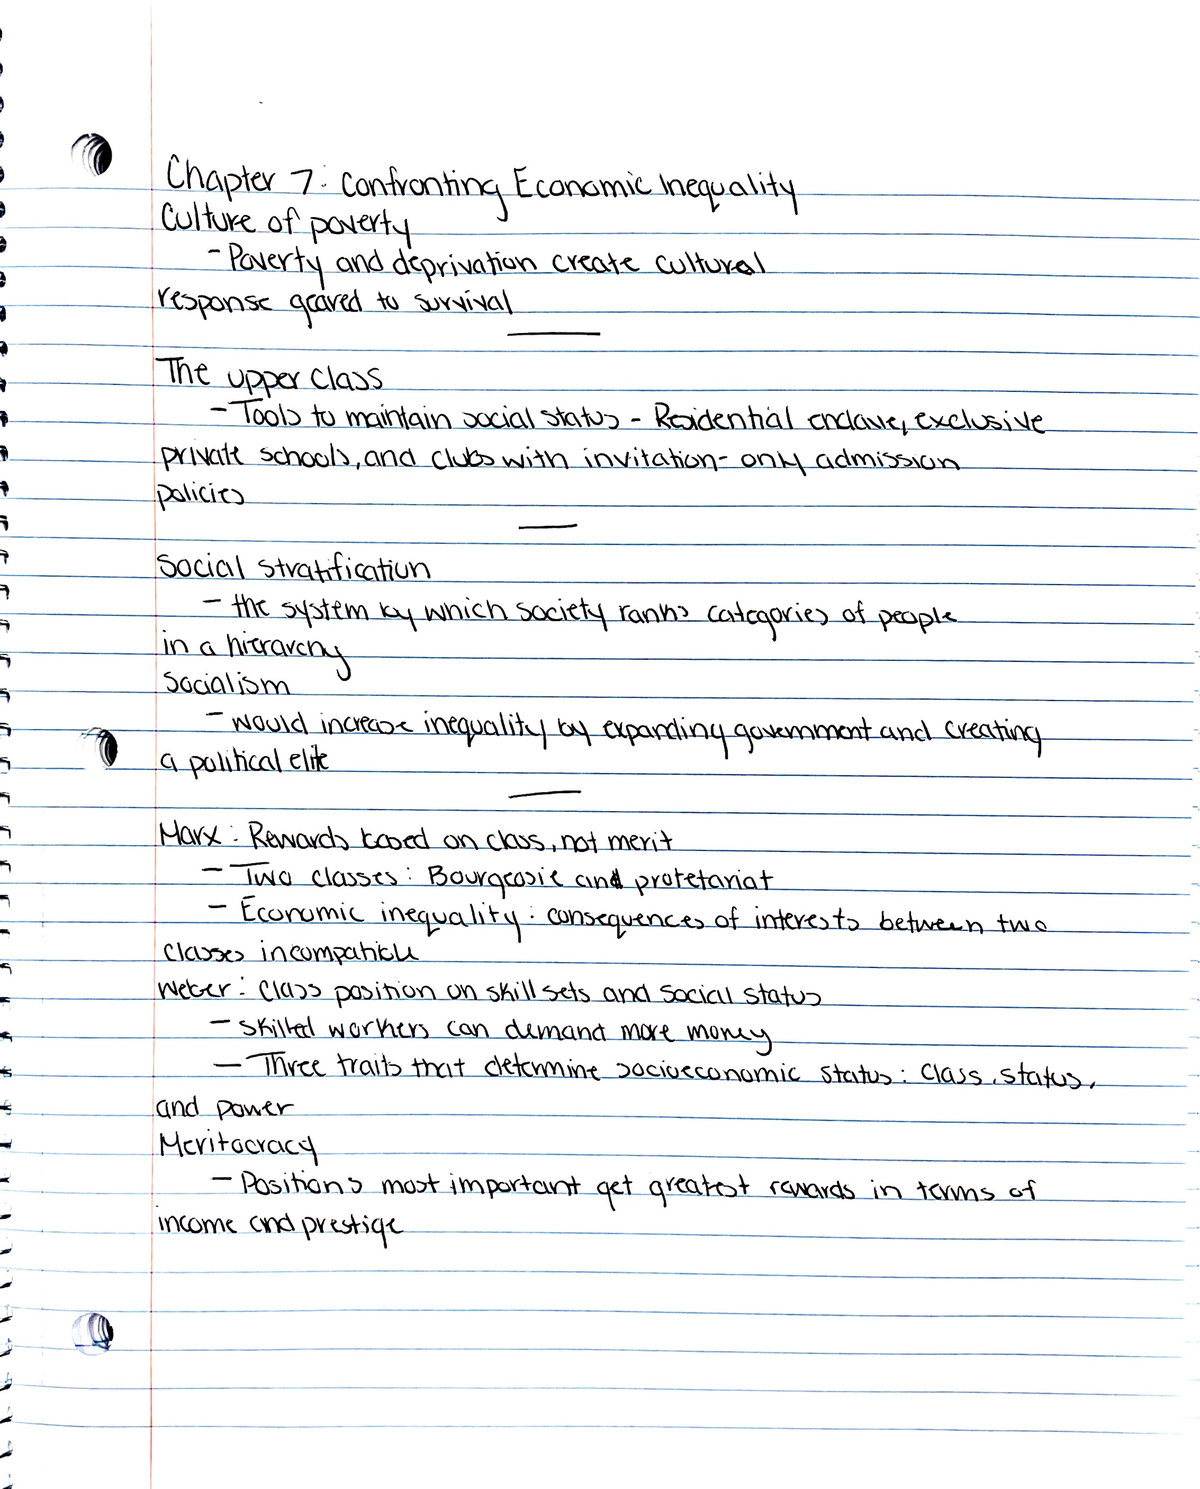 Chapter 7: Confronting Economic Inequality
Culture of poverty
- Poverty and deprivation create cultural
response geared to survival
The upper class
- Tools to maintain social status - Residential enclave, exclusive
private schools, and clubs with invitation-only admission
policies
Social stratification
- the system by which society ranks categories of people
in a hierarchy
Socialism
- would increase inequality by expanding government and creating
a political elite
Marx: Rewards based on class, not merit
- Two classes: Bourgeosie and proletariat
- Economic inequality: consequences of interests between two
classes incompatible
Weber: Class position on skill sets and social status
- skilled workers can demand more money
- Three traits that determine socioeconomic status: Class, status,
and power
Meritocracy
- Positions most important get greatest rewards in terms of
income and prestige